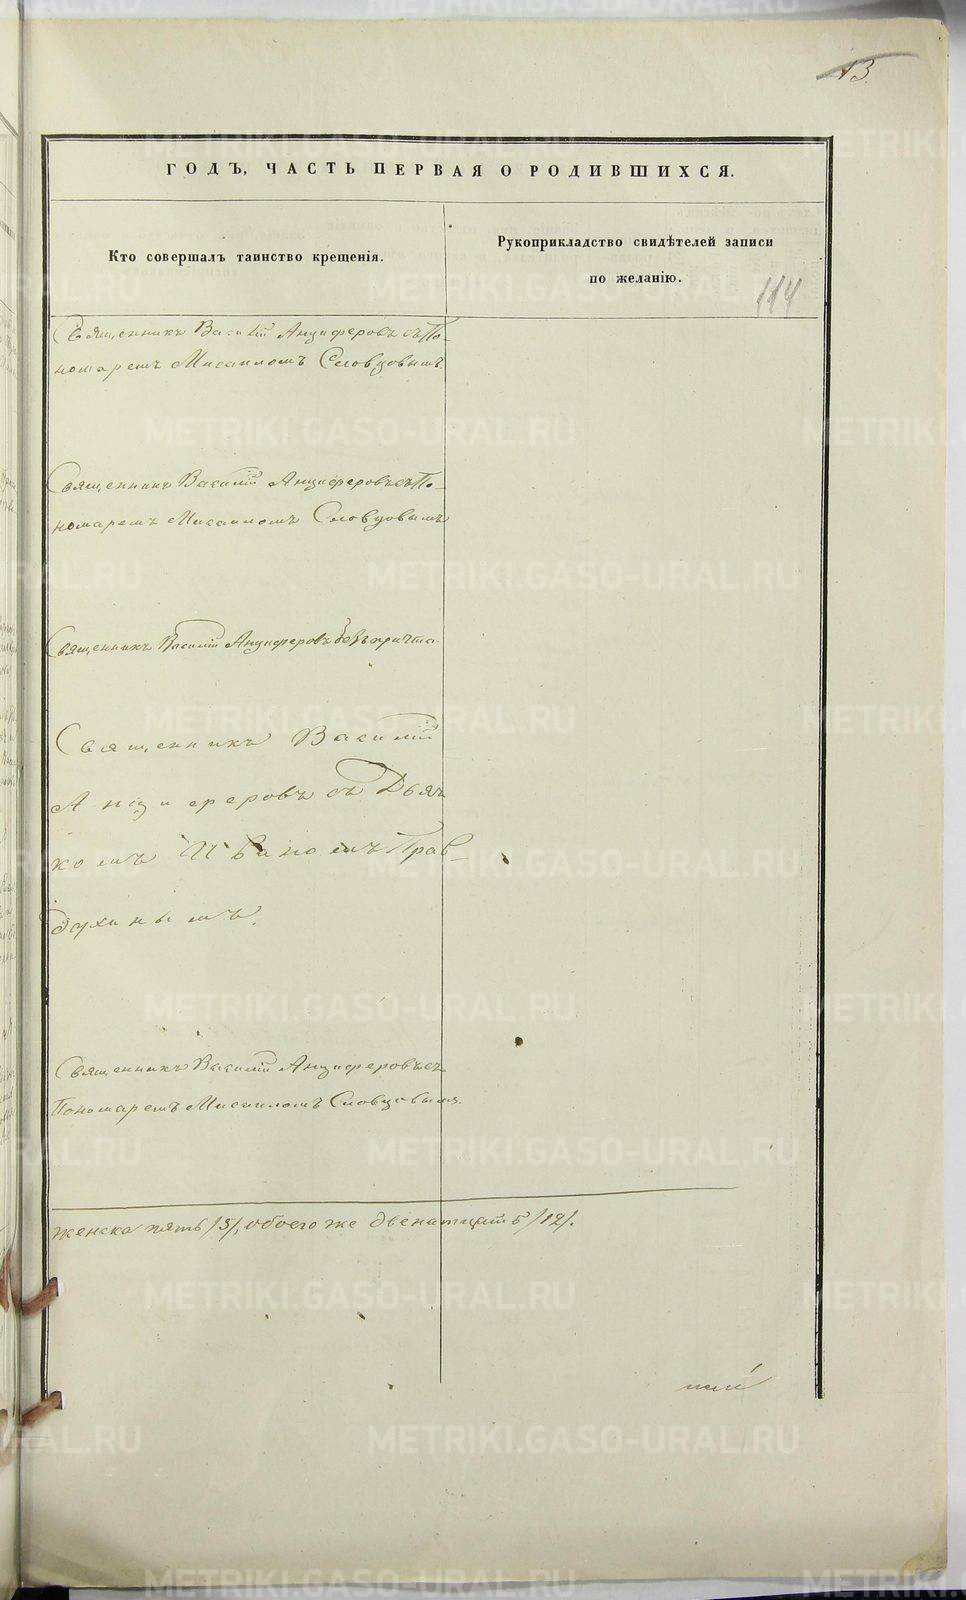 13
ГОДЪ, ЧАСТЬ ПЕРВАЯ О РОДИВШИХСЯ.
Кто совершалъ таинство крещенія.
Рукоприкладство свидѣтелей записи
по желанію.
114
Священникъ Василій Анциферовъ съ По-
номаремъ Мисаиломъ Словцовымъ.
Священникъ Василій Анциферовъ съ По-
номаремъ Мисаиломъ Словцовымъ
Священникъ Василій Анциферовъ безъ причта.
Священникъ Василій
Анциферовъ съ Дьяч
комъ Иваномъ Прав-
духинымъ.
Священникъ Василій Анциферовъ съ
Пономаремъ Мисаиломъ Словцовымъ.
женска пять /5/, обоего же двенатцать /12/.
METRIKI.GASO-URAL.RU